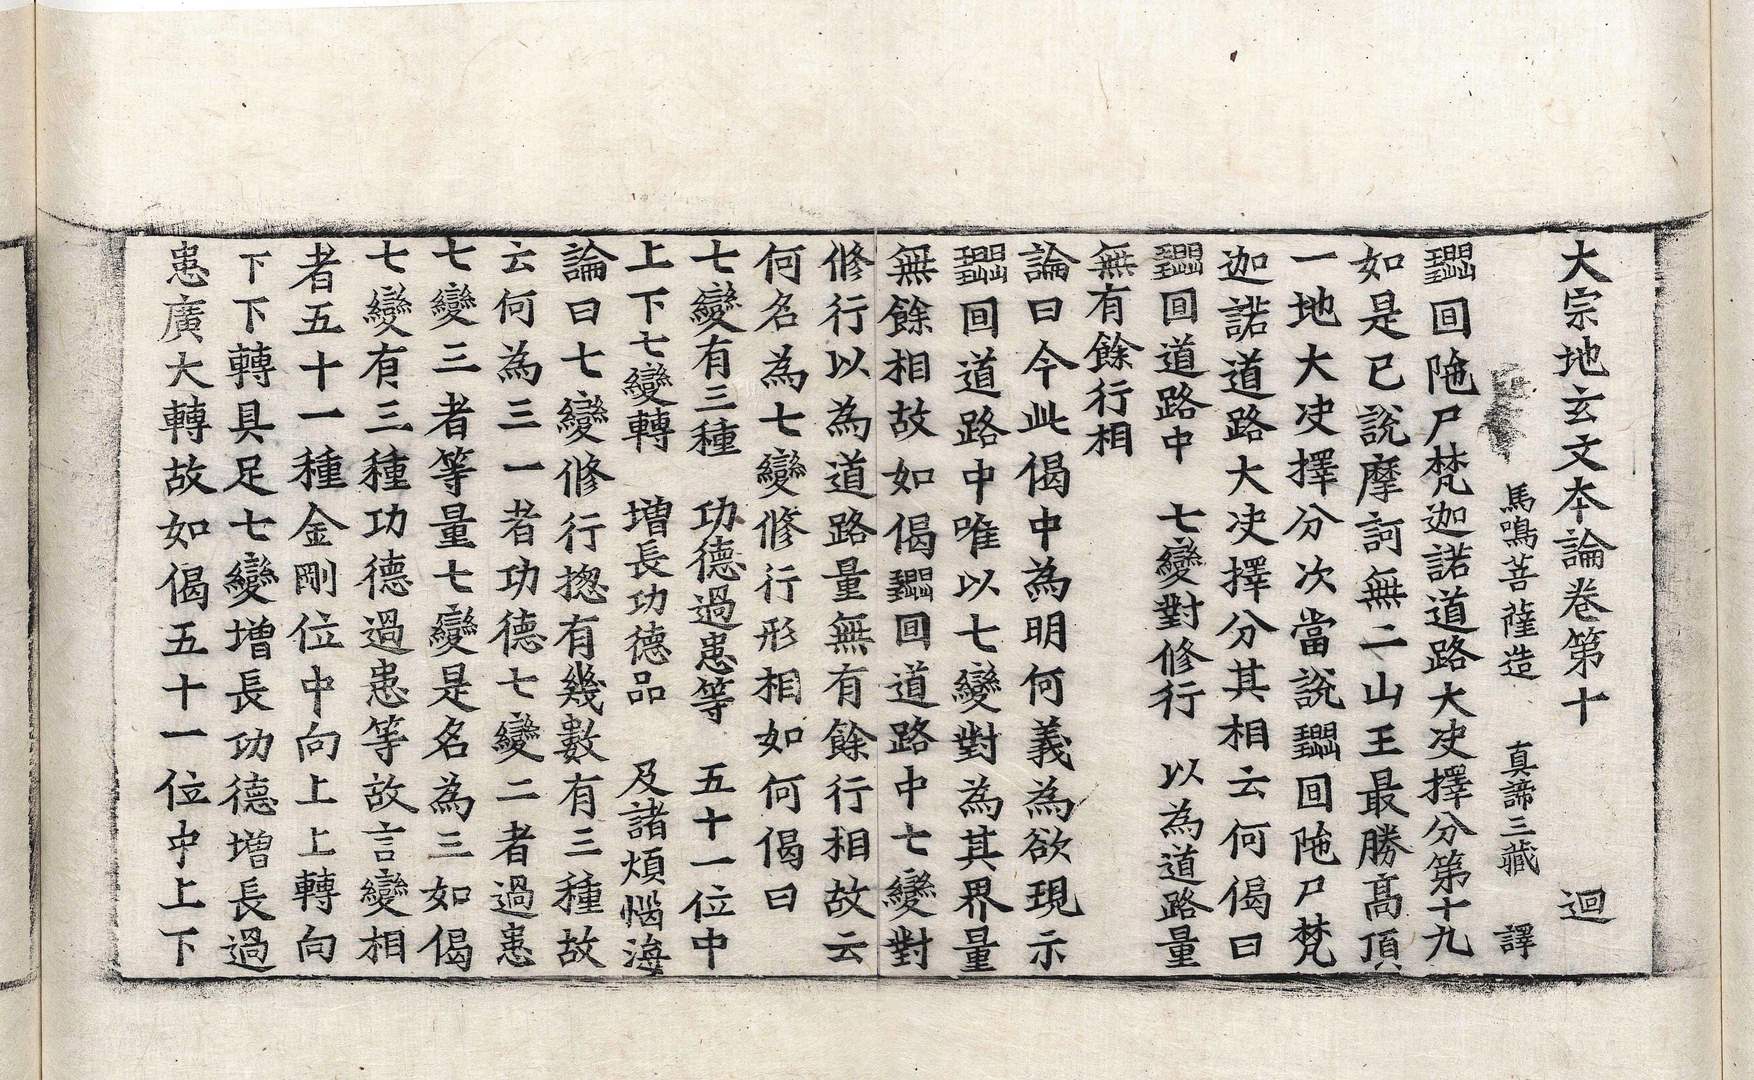 大宗地玄文本論卷第十 迴
馬鳴菩薩造 真諦三藏 譯
囬陁尸梵迦諾道路大决擇分第十九
如是已說摩訶無二山王最勝髙頂
一地大决擇分次當說囬陁尸梵
迦諾道路大决擇分其相云何偈曰
囬道路中 七變對修行 以為道路量
無有餘行相
論曰今此偈中為明何義為欲現示
囬道路中唯以七變對為其界量
無餘相故如偈囬道路中七變對
修行以為道路量無有餘行相故云
何名為七變修行形相如何偈曰
七變有三種 功德過患等 五十一位中
上下七變轉 增長功德品 及諸煩惱海
論曰七變修行揔有幾數有三種故
云何為三一者功德七變二者過患
七變三者等量七變是名為三如偈
七變有三種功德過患等故言變相
者五十一種金剛位中向上上轉向
下下轉具足七變增長功德增長過
患廣大轉故如偈五十一位中上下